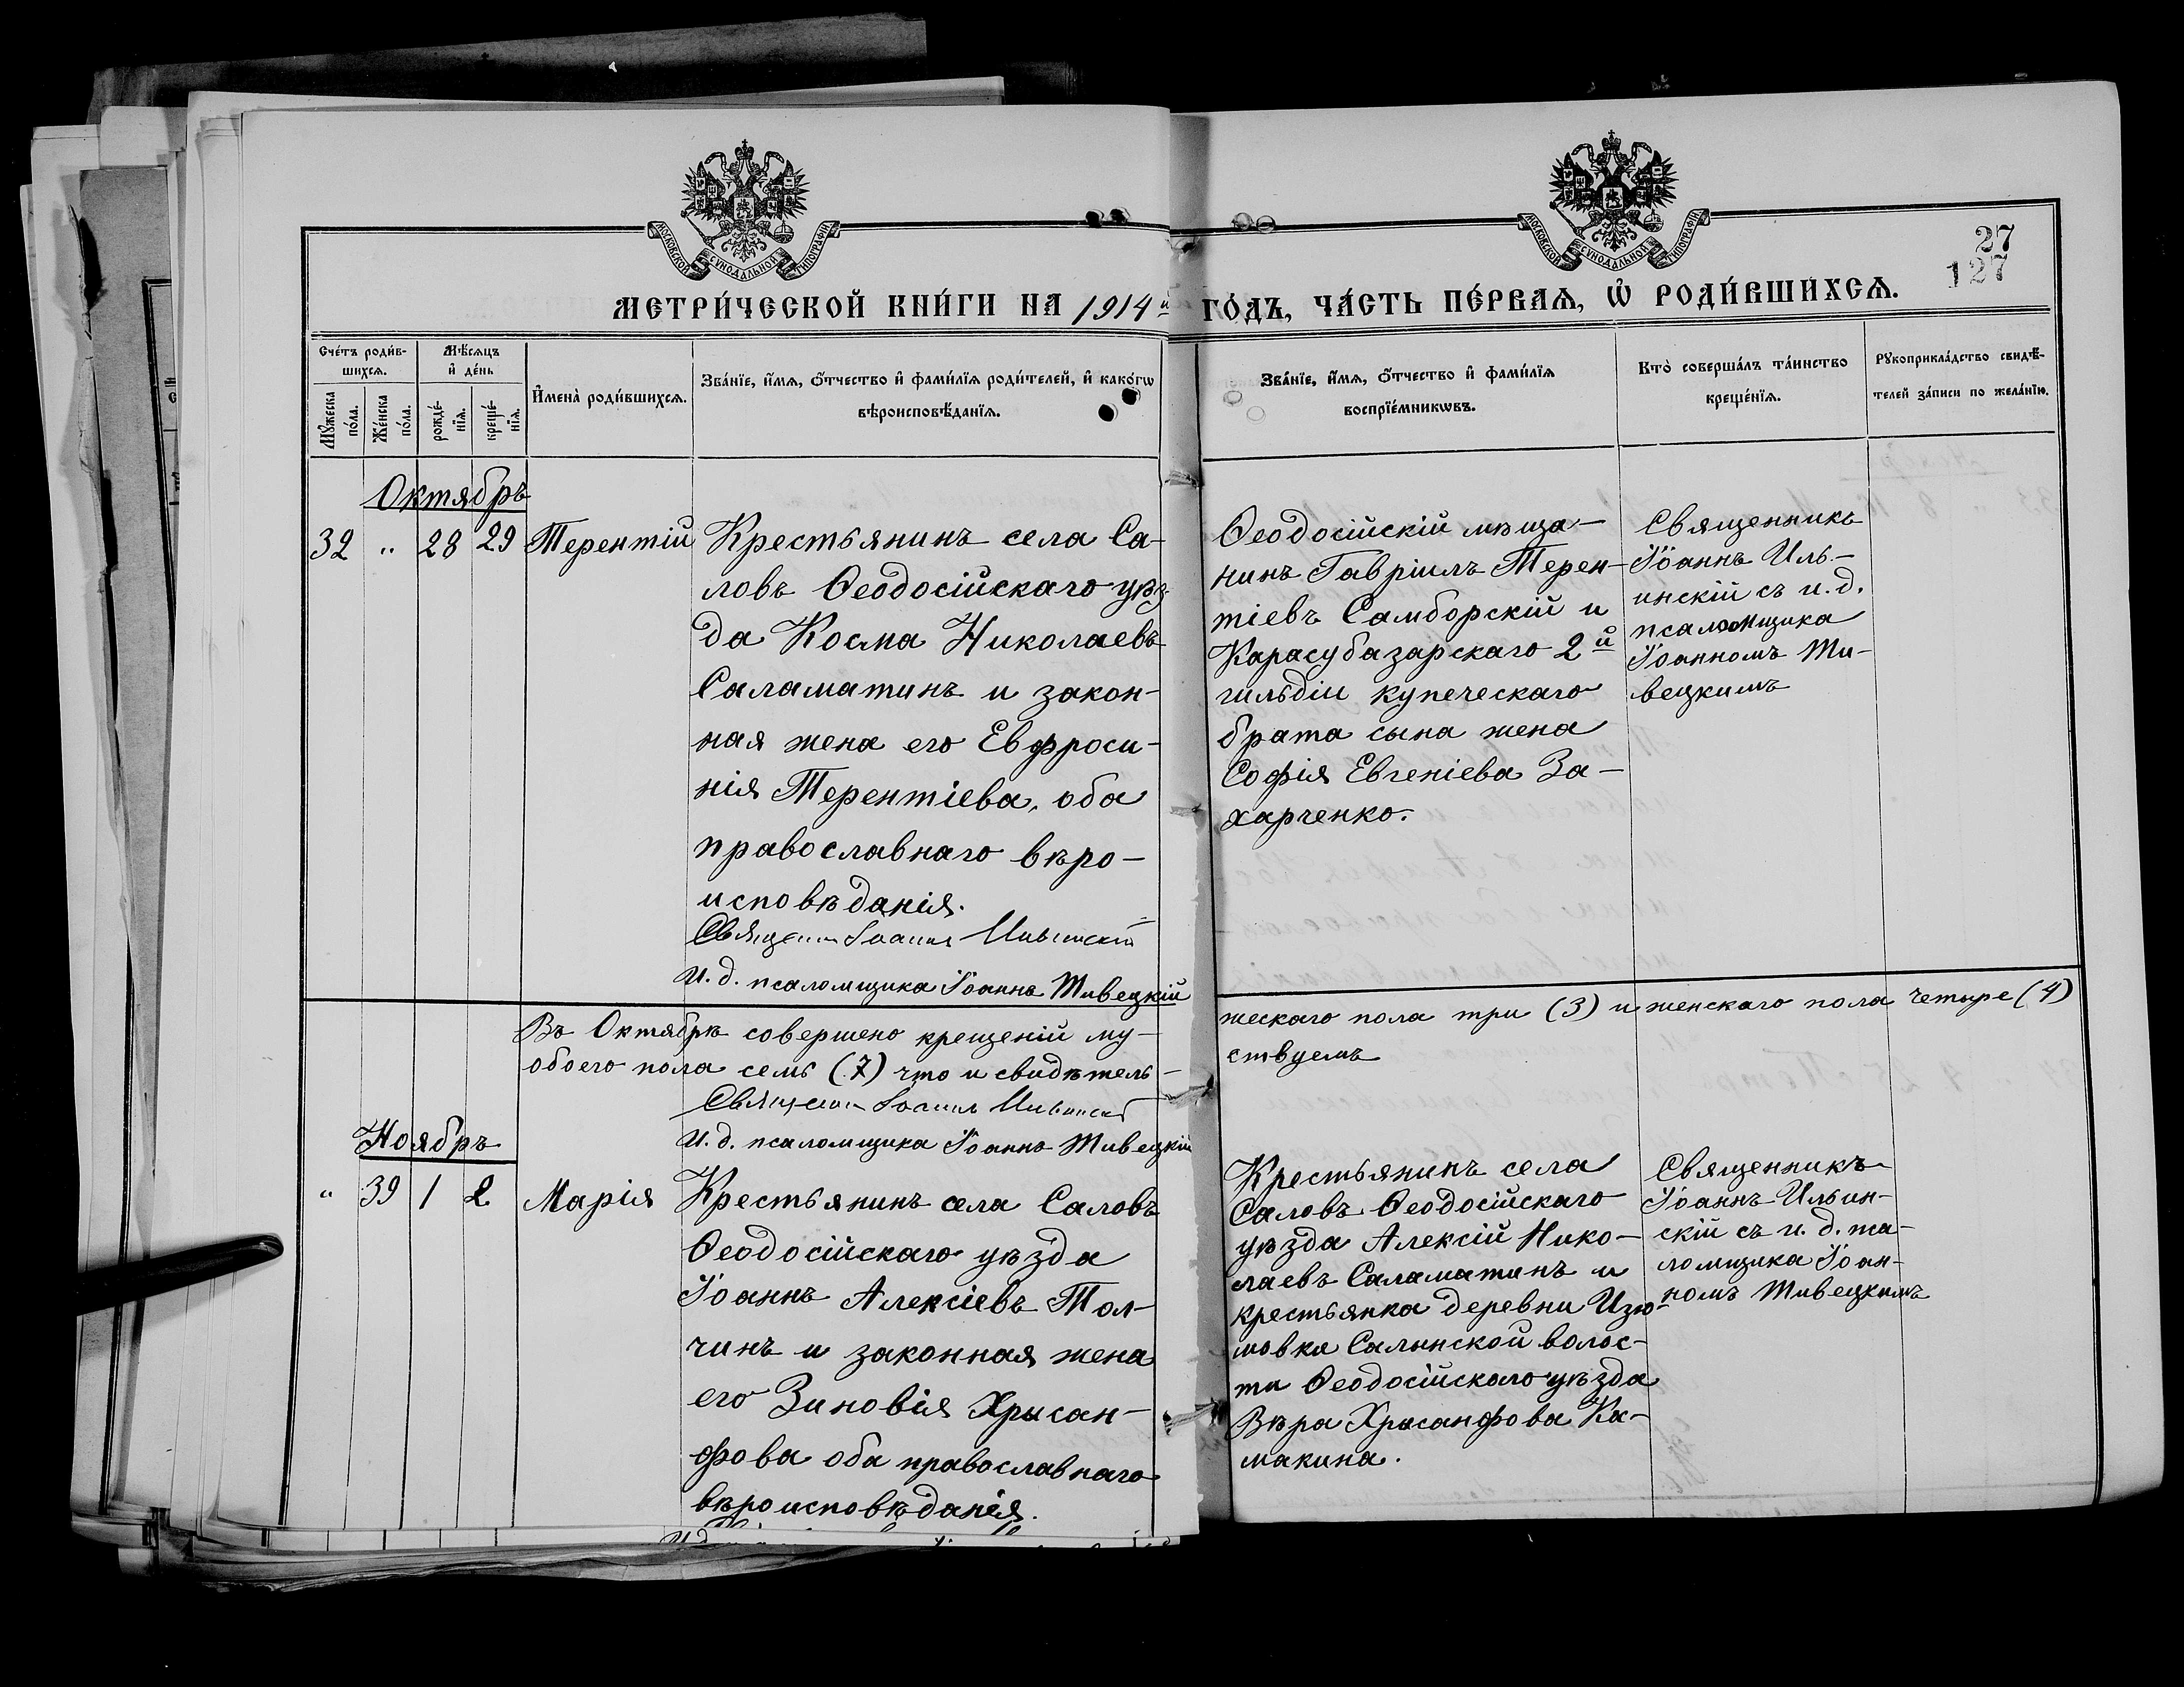 МОСКОВСКОЙ СѴНОДАЛЬНОЙ ТИПОГРАФІИ
МОСКОВСКОЙ СѴНОДАЛЬНОЙ ТИПОГРАФІИ
27
127
МЕТРИ́ЧЕСКОЙ КНИ́ГИ НА 1914й ГО́ДЪ, ЧА́СТЬ ПЕ́РВАѦ, Ѡ҆ РОДИ́ВШИХСѦ.
Сче́тъ роди́в-
шихсѧ.
Мꙋ́жеска по́ла.
Же́нска по́ла.
Мѣ́сѧцъ
и҆ де́нь
рожде́-
нїѧ.
креще́-
нїѧ.
И҆мена̀ роди́вшихсѧ.
Зва́нїе, и҆́мѧ, ѻ҆́тчество и҆ фами́лїѧ роди́телей, и҆ како́гѡ
вѣроисповѣ́данїѧ.
Зва́нїе, и҆́мѧ, ѻ҆́тчество и҆ фами́лїѧ
воспрїе́мникѡвъ.
Кто̀ соверша́лъ та́инство
креще́нїѧ.
Рꙋкоприкла́дство свидѣ́-
телей за́писи по жела́нїю.
Октябрь
32 " 28 29 Терентій
Крестьянинъ села Са-
ловъ Ѳеодосійскаго уѣз-
да Косма Николаевъ
Саламатинъ и закон-
ная жена его Евфроси-
нія Терентіева, оба
православнаго вѣро-
исповѣданія.
Священникъ Іоаннъ Ильинскій
И. д. псаломщика Іоаннъ Тивецкій
Ѳеодосійскій мѣща-
нинъ Гавріилъ Терен-
тіевъ Самборскій и
Карасубазарскаго 2й
гильдіи купеческаго
брата сына жена
Софія Евгеніева За-
харченко.
Священникъ
Іоаннъ Иль-
инскій съ и. д.
псаломщика
Іоанномъ Ти-
вецкимъ
Въ Октябрѣ совершено крещеній му-
жескаго пола три (3) и женскаго пола четыре (4)
обоего пола семь (7) что и свидѣтель-
ствуемъ
Священникъ Іоаннъ Ильинскій
И. д. псаломщика Іоаннъ Тивецкій
Ноябрь
" 39 1 2 Марія
Крестьянинъ села Саловъ
Ѳеодосійскаго уѣзда
Іоаннъ Алексіевъ Тол-
чинъ и законная жена
его Зиновія Хрисан-
фова оба православнаго
вѣроисповѣданія.
Крестьянинъ села
Саловъ Ѳеодосійскаго
уѣзда Алексій Нико-
лаевъ Саламатинъ и
крестьянка деревни Изю-
мовка Салынской волос-
ти Ѳеодосійскаго уѣзда
Вѣра Хрисанфова Ка-
макина.
Священникъ
Іоаннъ Ильин-
скій съ и. д. пса-
ломщика Іоан-
номъ Тивецкимъ